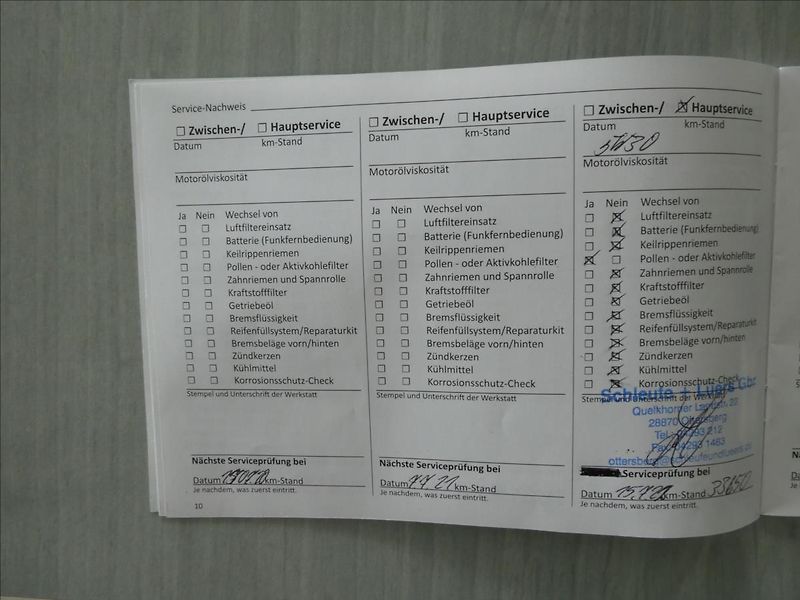 Service-Nachweis
☐ Zwischen-/ ☐ Hauptservice
Datum km-Stand
Motorölviskosität
Ja Nein Wechsel von
☐ ☐ Luftfiltereinsatz
☐ ☐ Batterie (Funkfernbedienung)
☐ ☐ Keilrippenriemen
☐ ☐ Pollen - oder Aktivkohlefilter
☐ ☐ Zahnriemen und Spannrolle
☐ ☐ Kraftstofffilter
☐ ☐ Getriebeöl
☐ ☐ Bremsflüssigkeit
☐ ☐ Reifenfüllsystem/Reparaturkit
☐ ☐ Bremsbeläge vorn/hinten
☐ ☐ Zündkerzen
☐ ☐ Kühlmittel
☐ ☐ Korrosionsschutz-Check
Stempel und Unterschrift der Werkstatt
Nächste Serviceprüfung bei
Datum km-Stand
Je nachdem, was zuerst eintritt.
10
☐ Zwischen-/ ☐ Hauptservice
Datum km-Stand
Motorölviskosität
Ja Nein Wechsel von
☐ ☐ Luftfiltereinsatz
☐ ☐ Batterie (Funkfernbedienung)
☐ ☐ Keilrippenriemen
☐ ☐ Pollen - oder Aktivkohlefilter
☐ ☐ Zahnriemen und Spannrolle
☐ ☐ Kraftstofffilter
☐ ☐ Getriebeöl
☐ ☐ Bremsflüssigkeit
☐ ☐ Reifenfüllsystem/Reparaturkit
☐ ☐ Bremsbeläge vorn/hinten
☐ ☐ Zündkerzen
☐ ☐ Kühlmittel
☐ ☐ Korrosionsschutz-Check
Stempel und Unterschrift der Werkstatt
Nächste Serviceprüfung bei
Datum 7.7.21 km-Stand
Je nachdem, was zuerst eintritt.
☐ Zwischen-/ ☒ Hauptservice
Datum km-Stand
5W30
Motorölviskosität
Ja Nein Wechsel von
☐ ☒ Luftfiltereinsatz
☐ ☒ Batterie (Funkfernbedienung)
☐ ☒ Keilrippenriemen
☒ ☐ Pollen - oder Aktivkohlefilter
☐ ☒ Zahnriemen und Spannrolle
☐ ☒ Kraftstofffilter
☐ ☒ Getriebeöl
☐ ☒ Bremsflüssigkeit
☐ ☒ Reifenfüllsystem/Reparaturkit
☐ ☒ Bremsbeläge vorn/hinten
☐ ☒ Zündkerzen
☐ ☒ Kühlmittel
☐ ☒ Korrosionsschutz-Check
Schleufe + Luers Gbr
Stempel und Unterschrift der Werkstatt
Quelkhorner Landstr. 22
28870 Ottersberg
Tel. 04293 212
Fax 04293 1463
ottersberg@schleufeundluers.de
Serviceprüfung bei
Datum km-Stand 33650
Je nachdem, was zuerst eintritt.